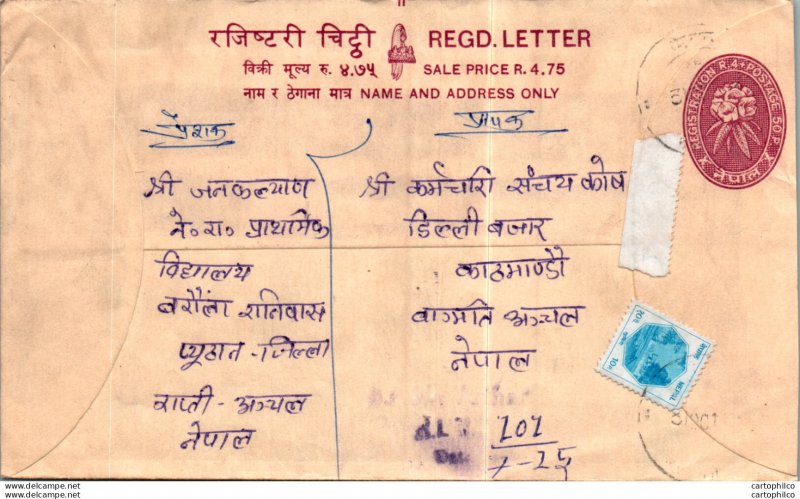 रजिष्टरी चिट्ठी REGD. LETTER
विक्री मूल्य रु. ४.७५ SALE PRICE R. 4.75
नाम र ठेगाना मात्र NAME AND ADDRESS ONLY
REGISTRATION R.4+POSTAGE 50P.
नेपाल
प्रेशक
श्री जनकल्याण
ने०रा० प्राथामिक
विद्यालय
बरौंला रातिवास
प्यूठान-जिल्ला
राप्ती-अञ्चल
नेपाल
प्रापक
श्री कर्मचारि संचय कोष
डिल्ली बजार
काठमाण्डौ
वाग्मति अञ्चल
नेपाल
NEPAL
10P.
R.L
202
7-25
cartophilco
cartophilco